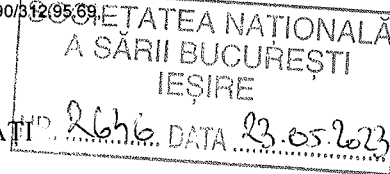 90/312.95.69,
SOCIETATEA NAȚIONALĂ
A SĂRII BUCUREȘTI
IEȘIRE
NR. 2646 DATA 23.05.2023